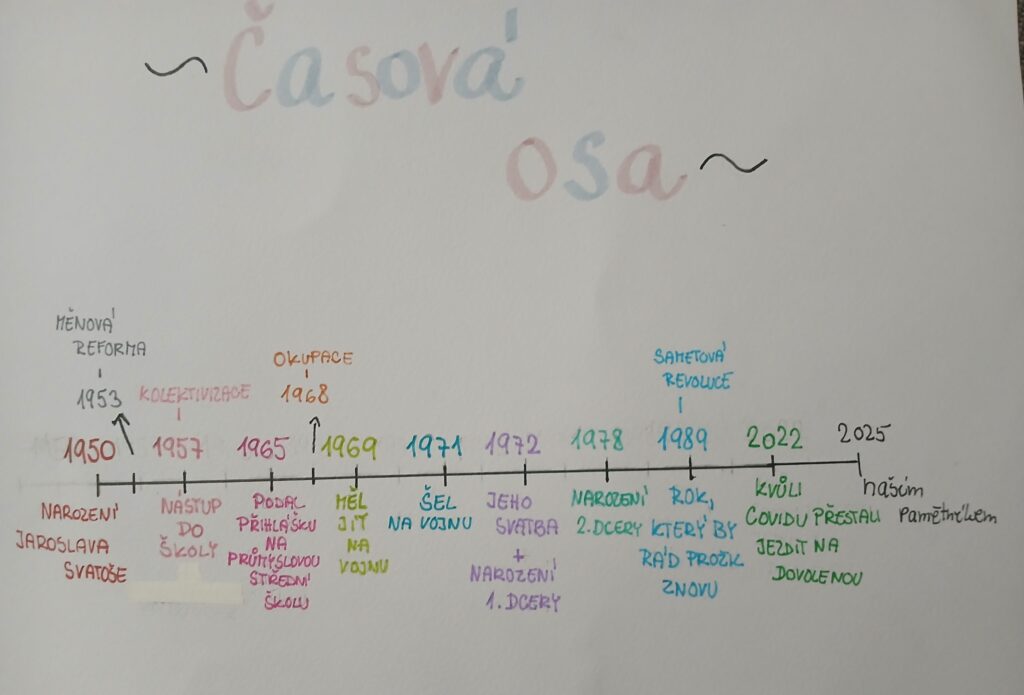 ~ Časová
osa ~
MĚNOVÁ
REFORMA
1953
KOLEKTIVIZACE
OKUPACE
1968
SAMETOVÁ
REVOLUCE
1950 1957 1965 1969 1971 1972 1978 1989 2022 2025
NAROZENÍ
JAROSLAVA
SVATOŠE
NÁSTUP
DO
ŠKOLY
PODAL
PŘIHLÁŠKU
NA
PRŮMYSLOVOU
STŘEDNÍ
ŠKOLU
MĚL
JÍT
NA
VOJNU
ŠEL
NA VOJNU
JEHO
SVATBA
+
NAROZENÍ
1. DCERY
NAROZENÍ
2. DCERY
ROK,
KTERÝ BY
RÁD PROŽIL
ZNOVU
KVŮLI
COVIDU PŘESTAL
JEZDIT NA
DOVOLENOU
naším
pamětníkem